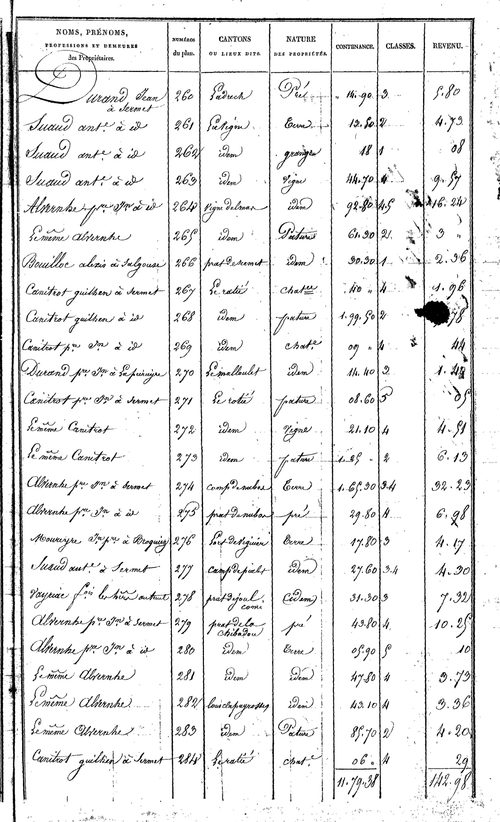 NOMS, PRÉNOMS, PROFESSIONS ET DEMEURES des Propriétaires. NUMÉROS du plan. CANTONS OU LIEUX DITS. NATURE DES PROPRIÉTÉS. CONTENANCE. CLASSES. REVENU.
Durand Jean à Sermet 260 Ladrech Pré 14.90 3 5.80
Suaud ant.e à id 261 Lavigne Terre 13.50 2 4.73
Suaud ant.e à id 262 idem grange 18 1 08
Suaud ant.e à id 263 idem Vigne 44.70 4 9.57
Alvernhe p.re J.n à id 264 Vigne delmas idem 92.80 4.5 16.24
Le même Alvernhe 265 idem Pature 61.30 2 3 "
Bouilloc alexis à 266 prat de sermet idem 30.30 1 2.36
Canitrot guilhen à Sermet 267 Le ratié chat.ee 40 " 4 1.96
Canitrot guilhen à id 268 idem pature 1.99.50 2 78
Canitrot p.re J.n à id 269 idem chat.e 09 " 4 44
Durand p.re J.n à 270 Le malloulet idem 14.40 3
Canitrot p.re J.n à Sermet 271 Le rotié pature 08.60 3 05
Le même Canitrot 272 idem Vigne 21.10 4 4.51
Le même Canitrot 273 idem pature 1.25 " 2 6.13
Alvernhe p.re J.n à Sermet 274 Terre 1.65.30 3.4 32.23
Alvernhe p.re J.n à id 275 pré 29.80 4 6.98
J.n p.re à 276 Terre 17.80 3 4.17
Suaud ant.e à Sermet 277 idem 27.60 3.4 4.30
278 idem 31.30 3 7.32
Alvernhe p.re J.n à Sermet 279 prat de la pré 43.80 4 10.25
Alvernhe p.re J.n à id 280 idem Terre 05.90 5 10
Le même Alvernhe 281 idem idem 47.80 4 3.73
Le même Alvernhe 282 idem 43.10 4 3.36
Le même Alvernhe 283 idem Pature 85.70 2 4.20
Canitrot guilhen à Sermet 284 Le ratié chat.e 06 " 4 29
11.79.38 142.98